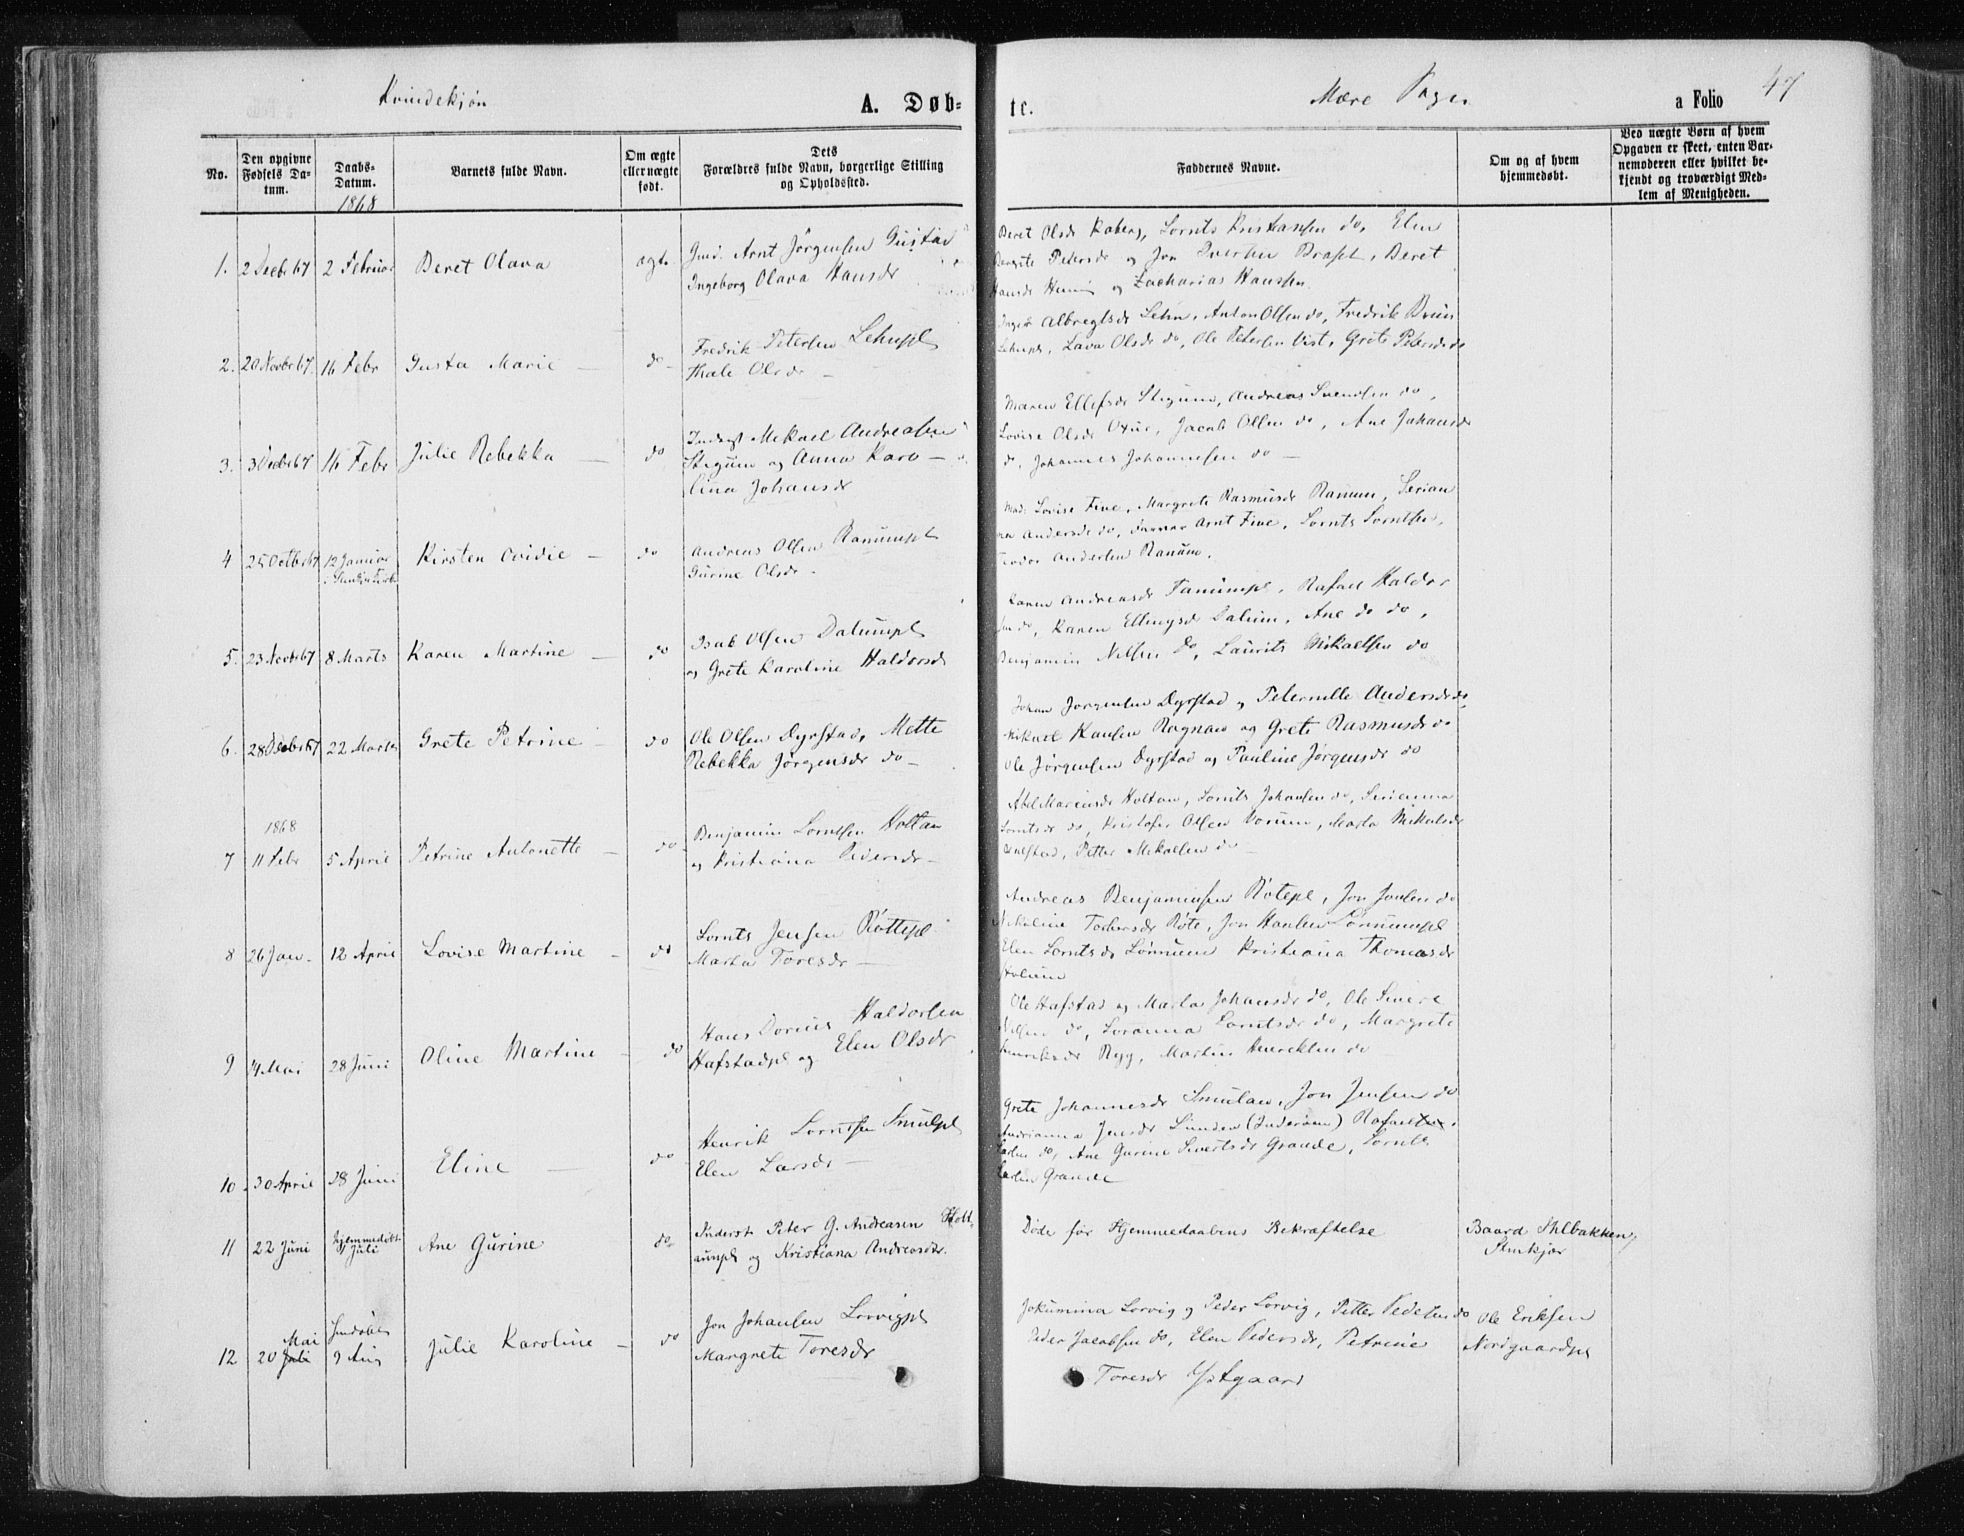 Kvindekjøn
A. Døb-
te.
Mære
a Folio
47
No.
Den opgivne
Fødsels Da-
tum.
Daabs-
Datum.
1868
Barnets fulde Navn.
Om ægte
eller uægte
født.
Dets
Forældres fulde Navn, borgerlige Stilling
og Opholdssted.
Faddernes Navne.
Om og af hvem
hjemmedøbt.
Ved uægte Børn af hvem
Opgaven er skeet, enten Bar-
nemoderen eller hvilket be-
kjendt og troværdigt Med-
lem af Menigheden.
1.
2 Decbr 67
2 Februar
Beret Olava
ægte
Arnt Jörgensen Gustad
Ingeborg Olava Hansdr
Beret Olsdr Raberg, Lornts Kristiansen do, Elen
Petersdr og Jon Braset, Beret
Hansdr og Zacharias Hansen
2.
20 Novbr 67.
16 Febr
Gusta Marie
do
Fredrik Petersen
Thale Olsdr
Albregtsdr Lehn, Anton Olsen do, Fredrik
Lava Olsdr do, Ole Petersen Vist, Grete Petersdr do
3.
3 Decbr 67
16 Febr
Julie Rebekka
do
Inderst Mekael Andreasen
Stigum og Anna Karo-
lina Johansdr
Maren Ellefsdr Stigum, Andreas Svendsen do,
Lovise Olsdr Oxur, Jacob Olsen do, Ane Johansdr
do, Johannes Johannesen do
4
25 Octbr 67
12 Januar
Kirsten Ovidie
do
Andreas Olsen Ranumpl
Gurine Olsdr
Mad: Lovise Five, Margrete Rasmusdr Ranum, Serian
na Andersdr do, Arnt Five, Lornts Lorntsen,
Andersen Ranum.
5.
23 Novbr 67
8 Marts
Karen Martine
do
Isak Olsen Dalumpl
og Grete Karoline Haldorsdr
Karen Andreasdr, Rafael Haldor
sen do, Karen Ellingsdr Dalum, Ane do do,
Benjamin Nilsen do, Laurits Mikaelsen do
6.
28 Decbr 67
22 Marts
Grete Petrine
do
Ole Olsen Dyrstad, Mette
Rebekka Jörgensdr do
Johan Jörgensen Dyrstad og Peternille Andersdr do,
Mikael Hansen Ragnaas og Grete Rasmusdr do
Ole Jørgensen Dyrstad og Pauline Jørgensdr do
1868
7
11 Febr
5 April
Petrine Antonette
do
Benjamin Lorntsen Holtan
og Kristiana Pedersdr
Abel Mariusdr Holtan, Lornts Johansen do, Serianna
Lorntsdr do, Kristofer Olsen Vorum, Marta Mikkelsdr
Petter Mikaelsen do
8
26 Jan.
12 April
Lovise Martine
do
Lornts Jensen Röttepl
Marta Toresdr
Andreas Benjaminsen Rötepl, Jon Jonsen do
Nikoline Röte, Jon Hansen Lønnumpl
Elen Lorntsdr Lønnum Kristiana Thomasdr
9
4 Mai
28 Juni
Oline Martine
do
Hans Dorius Haldorsen
Hafstadpl og Elen Olsdr
Ole Hafstad og Marta Johansdr do, Ole
Nilsen do, Loranna Lorntsdr do, Margrete
Henriksdr Ryg, Martin Henriksen do
10
30 April
28 Juni
Eline
do
Henrik Lorntsen Smulpl
Elen Larsdr
Grete Johannesdr Smulan, Jon Jensen do
Andrianna Jensdr Sunden (Inderøen) Rafael
Larsen do, Ane Gurine Sivertsdr Grande, Lornts
Larsen Grande
11
22 Juni
hjemmedøbt
1 Juli
Ane Gurine
do
Inderst Peter G. Andreasen Holt-
aunpl og Kristiana Andreasdtr.
Døde før Hjemmedaabens Bekræftelse
Baard Ihlbakken,
Stenkjær
12
Mai
20 Juli
9 Aug
Julie Karoline
do
Jon Johansen Lorvigpl
Margrete Toresdr
Jokumina Lorvig og Peder Lorvig, Petter Pedersen do
Peder Jacobsen do, Elen Pedersdr, Petrine
Toresdr Ystgaard
Ole Eriksen
Nordgaardpl